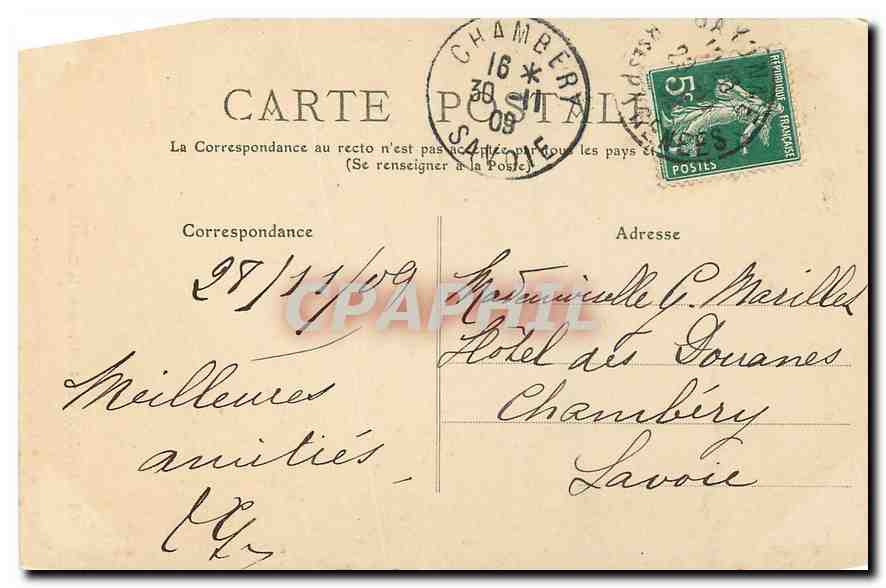 CARTE POSTALE
La Correspondance au recto n'est pas acceptée par tous les pays
(Se renseigner à la Poste)
CHAMBERY
16 *
30 -11
09
SAVOIE
RÉPUBLIQUE FRANÇAISE
5c
POSTES
Correspondance
27/11/09
Meilleures
amitiés
Adresse
Mademoiselle G. Marillet
Hôtel des Douanes
Chambéry
Savoie
CPAPHIL